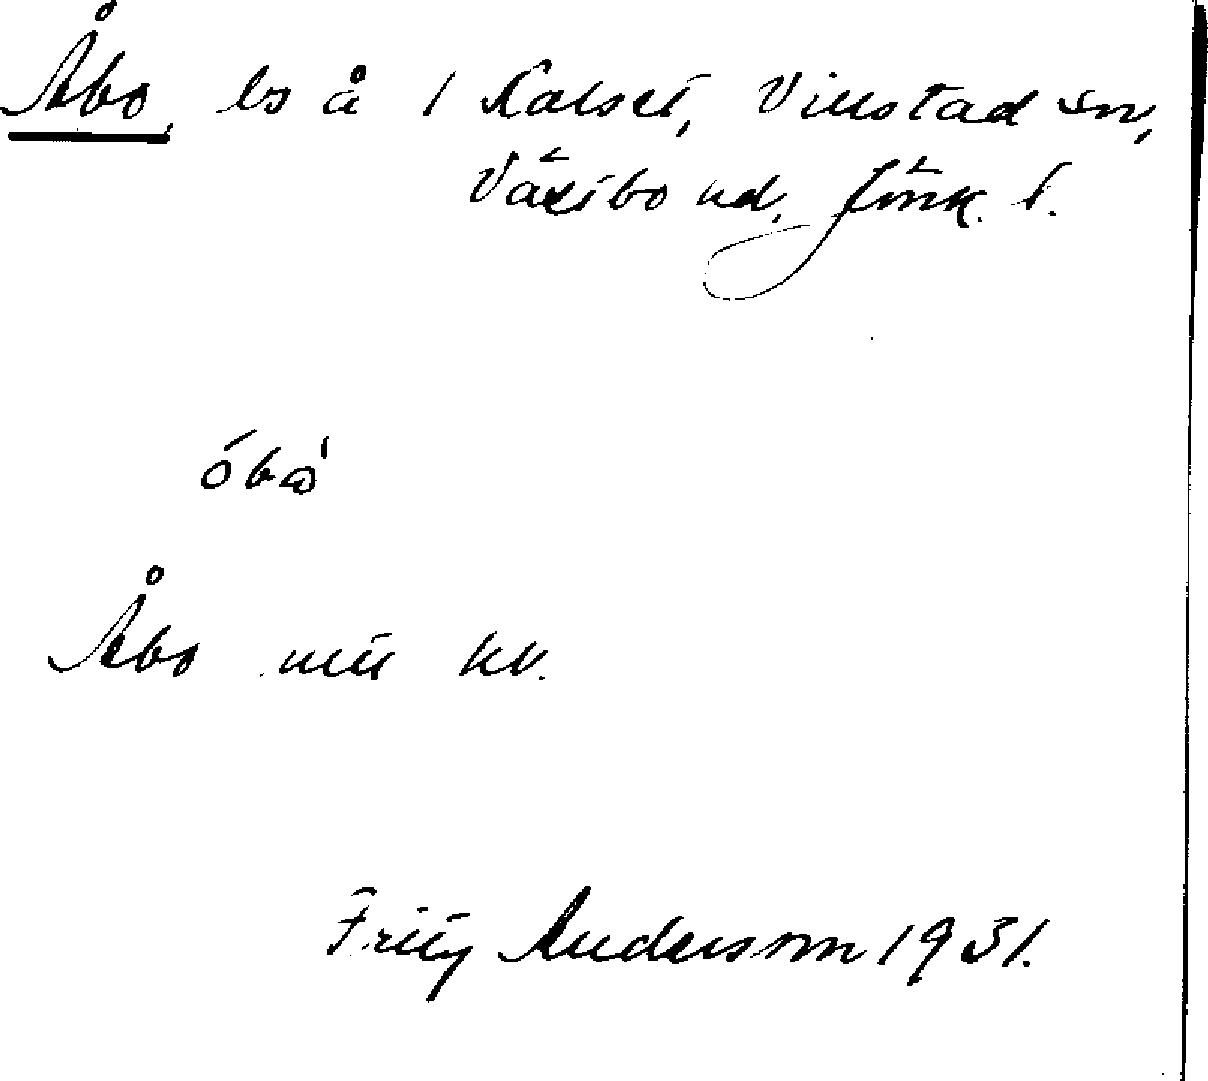 Åbo, ls å 1 Kalset, Villstad sn,
Västbo hd, Jönk. l.
óbὼ
Åbo kv.
Fritz Andersson 1931.